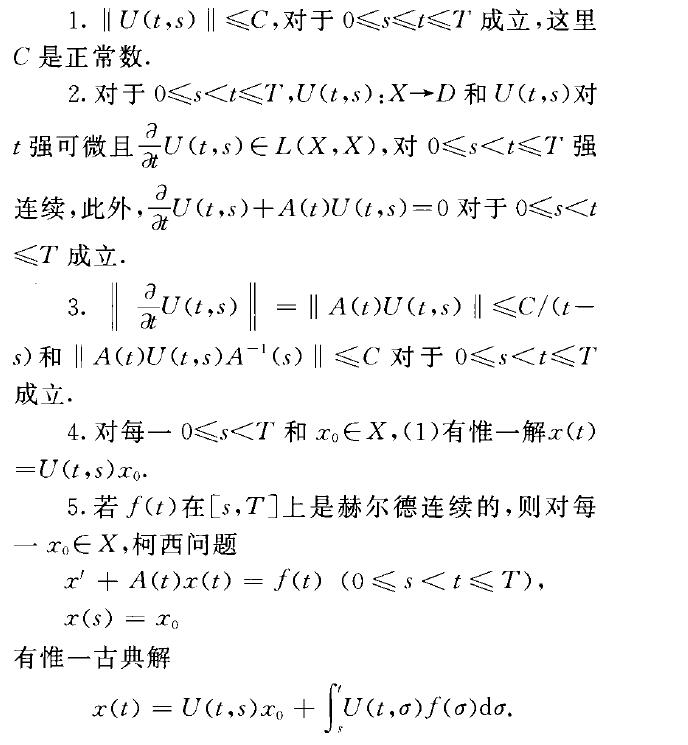 1. ‖U(t,s)‖≤C,对于 0≤s≤t≤T 成立,这里
C 是正常数.
2. 对于 0≤s<t≤T,U(t,s):X→D 和 U(t,s)对
t 强可微且∂/∂t U(t,s)∈L(X,X),对 0≤s<t≤T 强
连续,此外,∂/∂t U(t,s)+A(t)U(t,s)=0 对于 0≤s<t
≤T 成立.
3. ‖∂/∂t U(t,s)‖=‖A(t)U(t,s)‖≤C/(t−
s)和‖A(t)U(t,s)A⁻¹(s)‖≤C 对于 0≤s<t≤T
成立.
4. 对每一 0≤s<T 和 x₀∈X,(1)有惟一解x(t)
=U(t,s)x₀.
5. 若 f(t)在[s,T]上是赫尔德连续的,则对每
一 x₀∈X,柯西问题
x′ + A(t)x(t) = f(t) (0≤s<t≤T),
x(s) = x₀
有惟一古典解
x(t) = U(t,s)x₀ + ∫ₛᵗU(t,σ)f(σ)dσ.